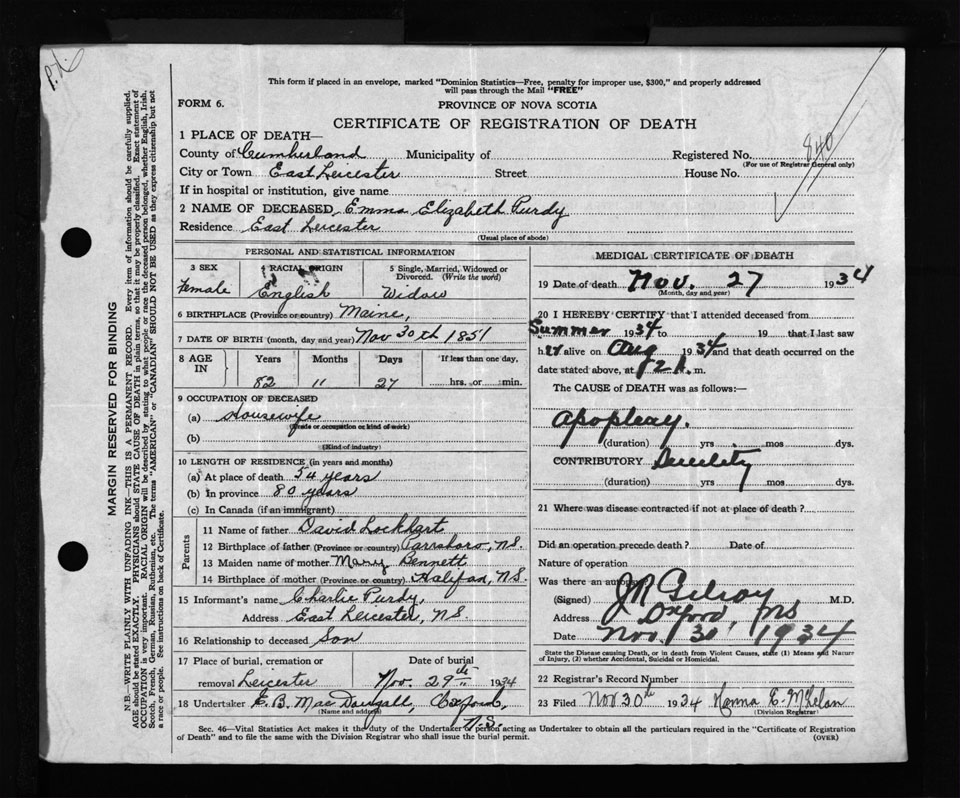 P.N.
This form if placed in an envelope, marked "Dominion Statistics—Free, penalty for improper use, $300," and properly addressed
will pass through the Mail "FREE"
FORM 6.
PROVINCE OF NOVA SCOTIA
CERTIFICATE OF REGISTRATION OF DEATH
840
1 PLACE OF DEATH—
County of Cumberland Municipality of Registered No.
(For use of Registrar General only)
City or Town East Leicester Street House No.
If in hospital or institution, give name
2 NAME OF DECEASED Emma Elizabeth Purdy
Residence East Leicester
(Usual place of abode)
PERSONAL AND STATISTICAL INFORMATION
3 SEX 4 RACIAL ORIGIN 5 Single, Married, Widowed or
Divorced. (Write the word)
Female English Widow
6 BIRTHPLACE (Province or country) Maine,
7 DATE OF BIRTH (month, day and year) Nov 30th 1851
8 AGE IN Years Months Days If less than one day,
82 11 27 hrs. or min.
9 OCCUPATION OF DECEASED
(a) Housewife
(Trade or occupation or kind of work)
(b)
(Kind of industry)
10 LENGTH OF RESIDENCE (in years and months)
(a) At place of death 54 years
(b) In province 80 years
(c) In Canada (if an immigrant)
Parents
11 Name of father David Lockhart
12 Birthplace of father (Province or country) Parrsboro, N.S.
13 Maiden name of mother Mary Bennett
14 Birthplace of mother (Province or country) Halifax, N.S.
15 Informant's name Charlie Purdy,
Address East Leicester, N.S.
16 Relationship to deceased Son
17 Place of burial, cremation or Date of burial
removal Leicester Nov. 29th 1934
18 Undertaker E. B. MacDougall, Oxford,
(Name and address) N.S.
MEDICAL CERTIFICATE OF DEATH
19 Date of death Nov. 27 1934
(Month, day and year)
20 I HEREBY CERTIFY that I attended deceased from
Summer 1934 to 19 that I last saw
her alive on Aug 1934 and that death occurred on the
date stated above, at m.
The CAUSE of DEATH was as follows:—
Apoplexy.
(duration) yrs mos dys.
CONTRIBUTORY Senility
(duration) yrs. mos. dys.
21 Where was disease contracted if not at place of death?
Did an operation precede death? Date of
Nature of operation
Was there an autopsy
(Signed) J R Gilroy M.D.
Address Oxford NS
Date Nov. 30, 1934
State the Disease causing Death, or in death from Violent Causes, state (1) Means and Nature
of Injury, (2) whether Accidental, Suicidal or Homicidal.
22 Registrar's Record Number
23 Filed Nov 30th 1934 E.
(Division Registrar)
Sec. 46—Vital Statistics Act makes it the duty of the Undertaker or person acting as Undertaker to obtain all the particulars required in the "Certificate of Registration
of Death" and to file the same with the Division Registrar who shall issue the burial permit. (OVER)
MARGIN RESERVED FOR BINDING
N.B.—WRITE PLAINLY WITH UNFADING INK—THIS IS A PERMANENT RECORD. Every item of information should be carefully supplied.
AGE should be stated EXACTLY. PHYSICIANS should STATE CAUSE OF DEATH in plain terms, so that it may be properly classified. Exact statement of
OCCUPATION is very important. RACIAL ORIGIN will be described by stating to what people or race the deceased person belonged, whether English, Irish,
Scotch, French, German, Russian, Ruthenian, etc. The terms "AMERICAN" or "CANADIAN" SHOULD NOT BE USED as they express citizenship but not
a race or people. See instructions on back of Certificate.